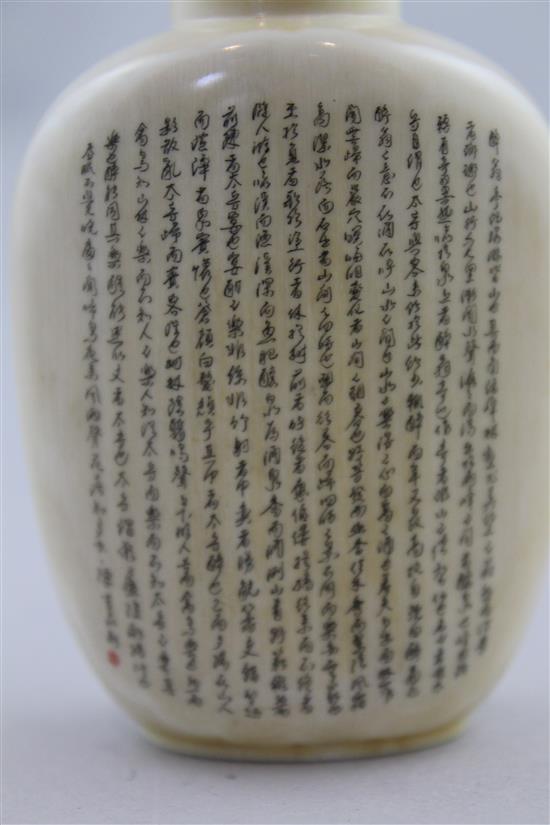 醉翁亭記環滁皆山也其西南諸峰林壑尤美望之蔚然而深秀
者琅琊也山行六七里漸聞水聲潺潺而瀉出於兩峰之間者釀泉也峰回
路轉有亭翼然臨於泉上者醉翁亭也作亭者誰山之僧智仙也名之者誰太
守自謂也太守與客來飲於此飲少輒醉而年又最高故自號曰醉翁也
醉翁之意不在酒在乎山水之間也山水之樂得之心而寓之酒也若夫日出而林霏
開雲歸而巖穴暝晦明變化者山間之朝暮也野芳發而幽香佳木秀而繁陰風霜
高潔水落而石出者山間之四時也朝而往暮而歸四時之景不同而樂亦無窮也
至於負者歌於塗行者休於樹前者呼後者應傴僂提攜往來而不絕者
滁人遊也臨溪而漁溪深而魚肥釀泉為酒泉香而酒洌山肴野蔌雜然而
前陳者太守宴也宴酣之樂非絲非竹射者中弈者勝觥籌交錯起坐
而諠譁者眾賓懽也蒼顏白髮頹乎其中者太守醉也已而夕陽在山人
影散亂太守歸而賓客從也樹林陰翳鳴聲上下遊人去而禽鳥樂也然而
禽鳥知山林之樂而不知人之樂人知從太守遊而樂而不知太守之樂其
樂也醉能同其樂醒能述以文者太守也太守謂誰廬陵歐陽修也
春眠不覺曉處處聞啼鳥夜來風雨聲花落知多少